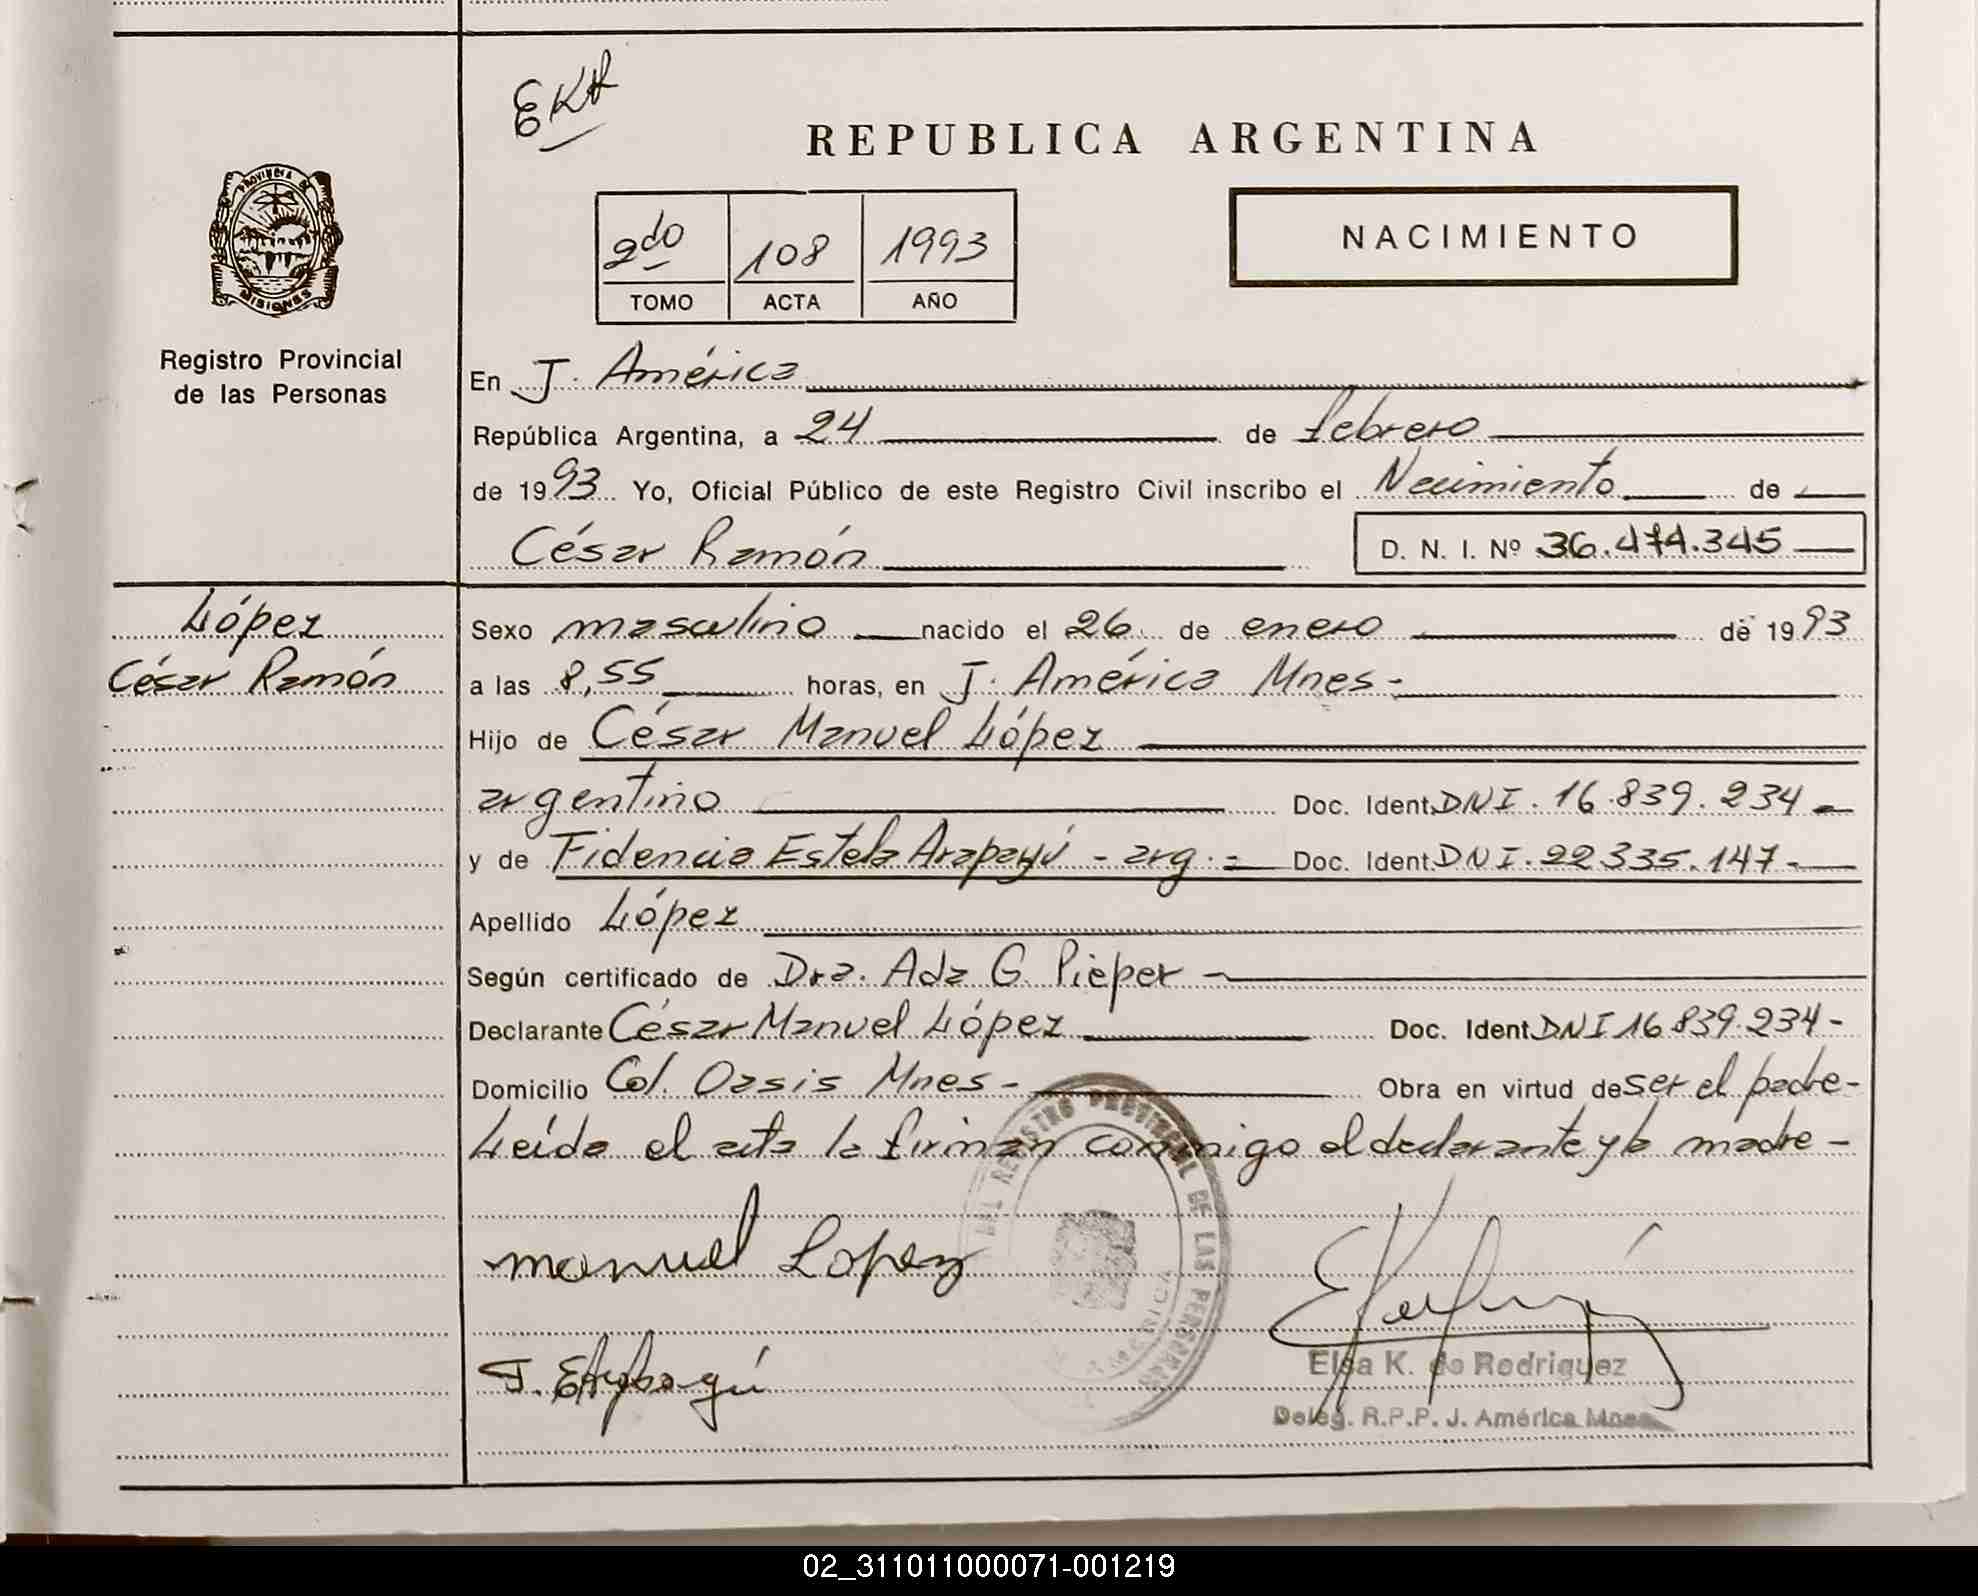 EKR
REPUBLICA ARGENTINA
PROVINCIA DE
MISIONES
Registro Provincial
de las Personas
2do 108 1993
TOMO ACTA AÑO
NACIMIENTO
En J. América
República Argentina, a 24 de febrero
de 1993 Yo, Oficial Público de este Registro Civil inscribo el Nacimiento de
César Ramón D. N. I. Nº 36.474.345
López
César Ramón
Sexo masculino nacido el 26 de enero de 1993
a las 8,55 horas, en J. América Mnes-
Hijo de César Manuel López
argentino Doc. Ident. DNI. 16.839.234
y de Fidencia Estela Arapayú - arg. Doc. Ident. DNI. 22335.147-
Apellido López
Según certificado de Dra. Ada G. Pieper
Declarante César Manuel López Doc. Ident. DNI 16839.234-
Domicilio Col. Oasis Mnes- Obra en virtud de ser el padre-
Leída el acta la firman conmigo el declarante y la madre-
manuel Lopez
REGISTRO PROVINCIAL DE LAS PERSONAS
Elsa K. de Rodriguez
Deleg. R.P.P. J. América Mnes
02_311011000071-001219